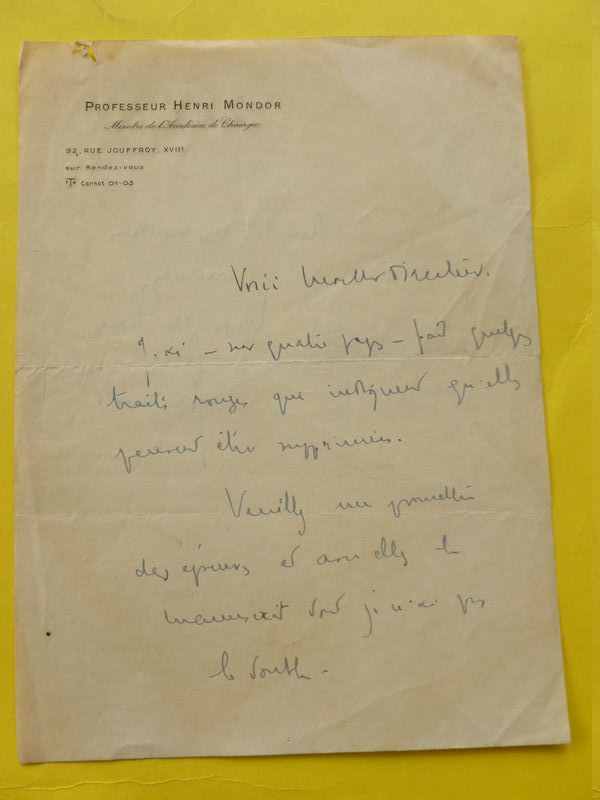 PROFESSEUR HENRI MONDOR
Membre de l'Académie de Chirurgie
92, RUE JOUFFROY, XVIIᵉ
sur Rendez-vous
Carnot 01-03
Voici Monsieur Directeur.
J'ai – sur quatre pages – fait quelques
traits rouges qui indiquent qu'elles
peuvent être supprimées.
Veuillez me
des épreuves et avec elles le
manuscrit dont je n'ai pas
le double –